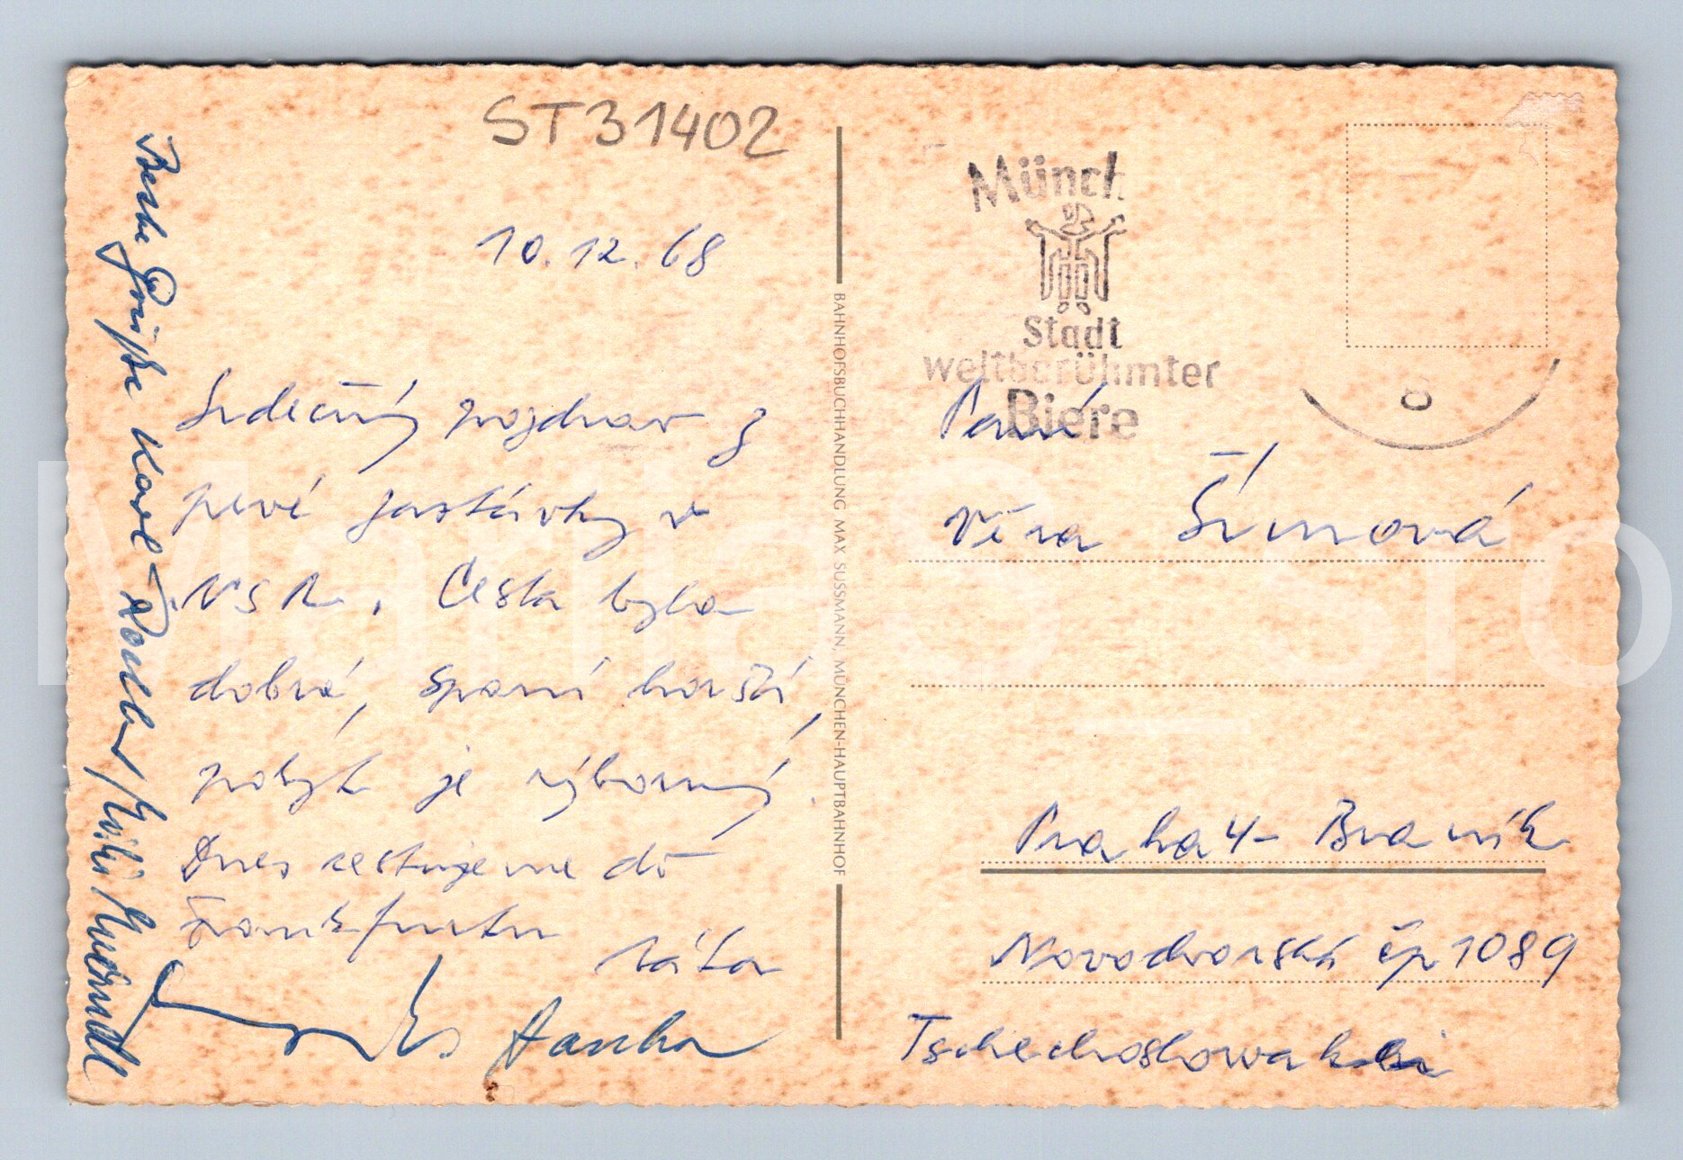 ST31402
10.12.68
Srdečný pozdrav z
prvé zastávky v
NSR. Cesta byla
dobrá, spaní horší,
pobyt je výborný.
Dnes cestujeme do
Frankfurtu
Táta
Hanka
Beste Grüße
BAHNHOFSBUCHHANDLUNG MAX SUSSMANN, MÜNCHEN-HAUPTBAHNHOF
Münch
Stadt
weltberühmter
Biere
Paní
Věra Šímová
Praha 4 - Braník
Novodvorská čp 1089
Tschechoslowakei